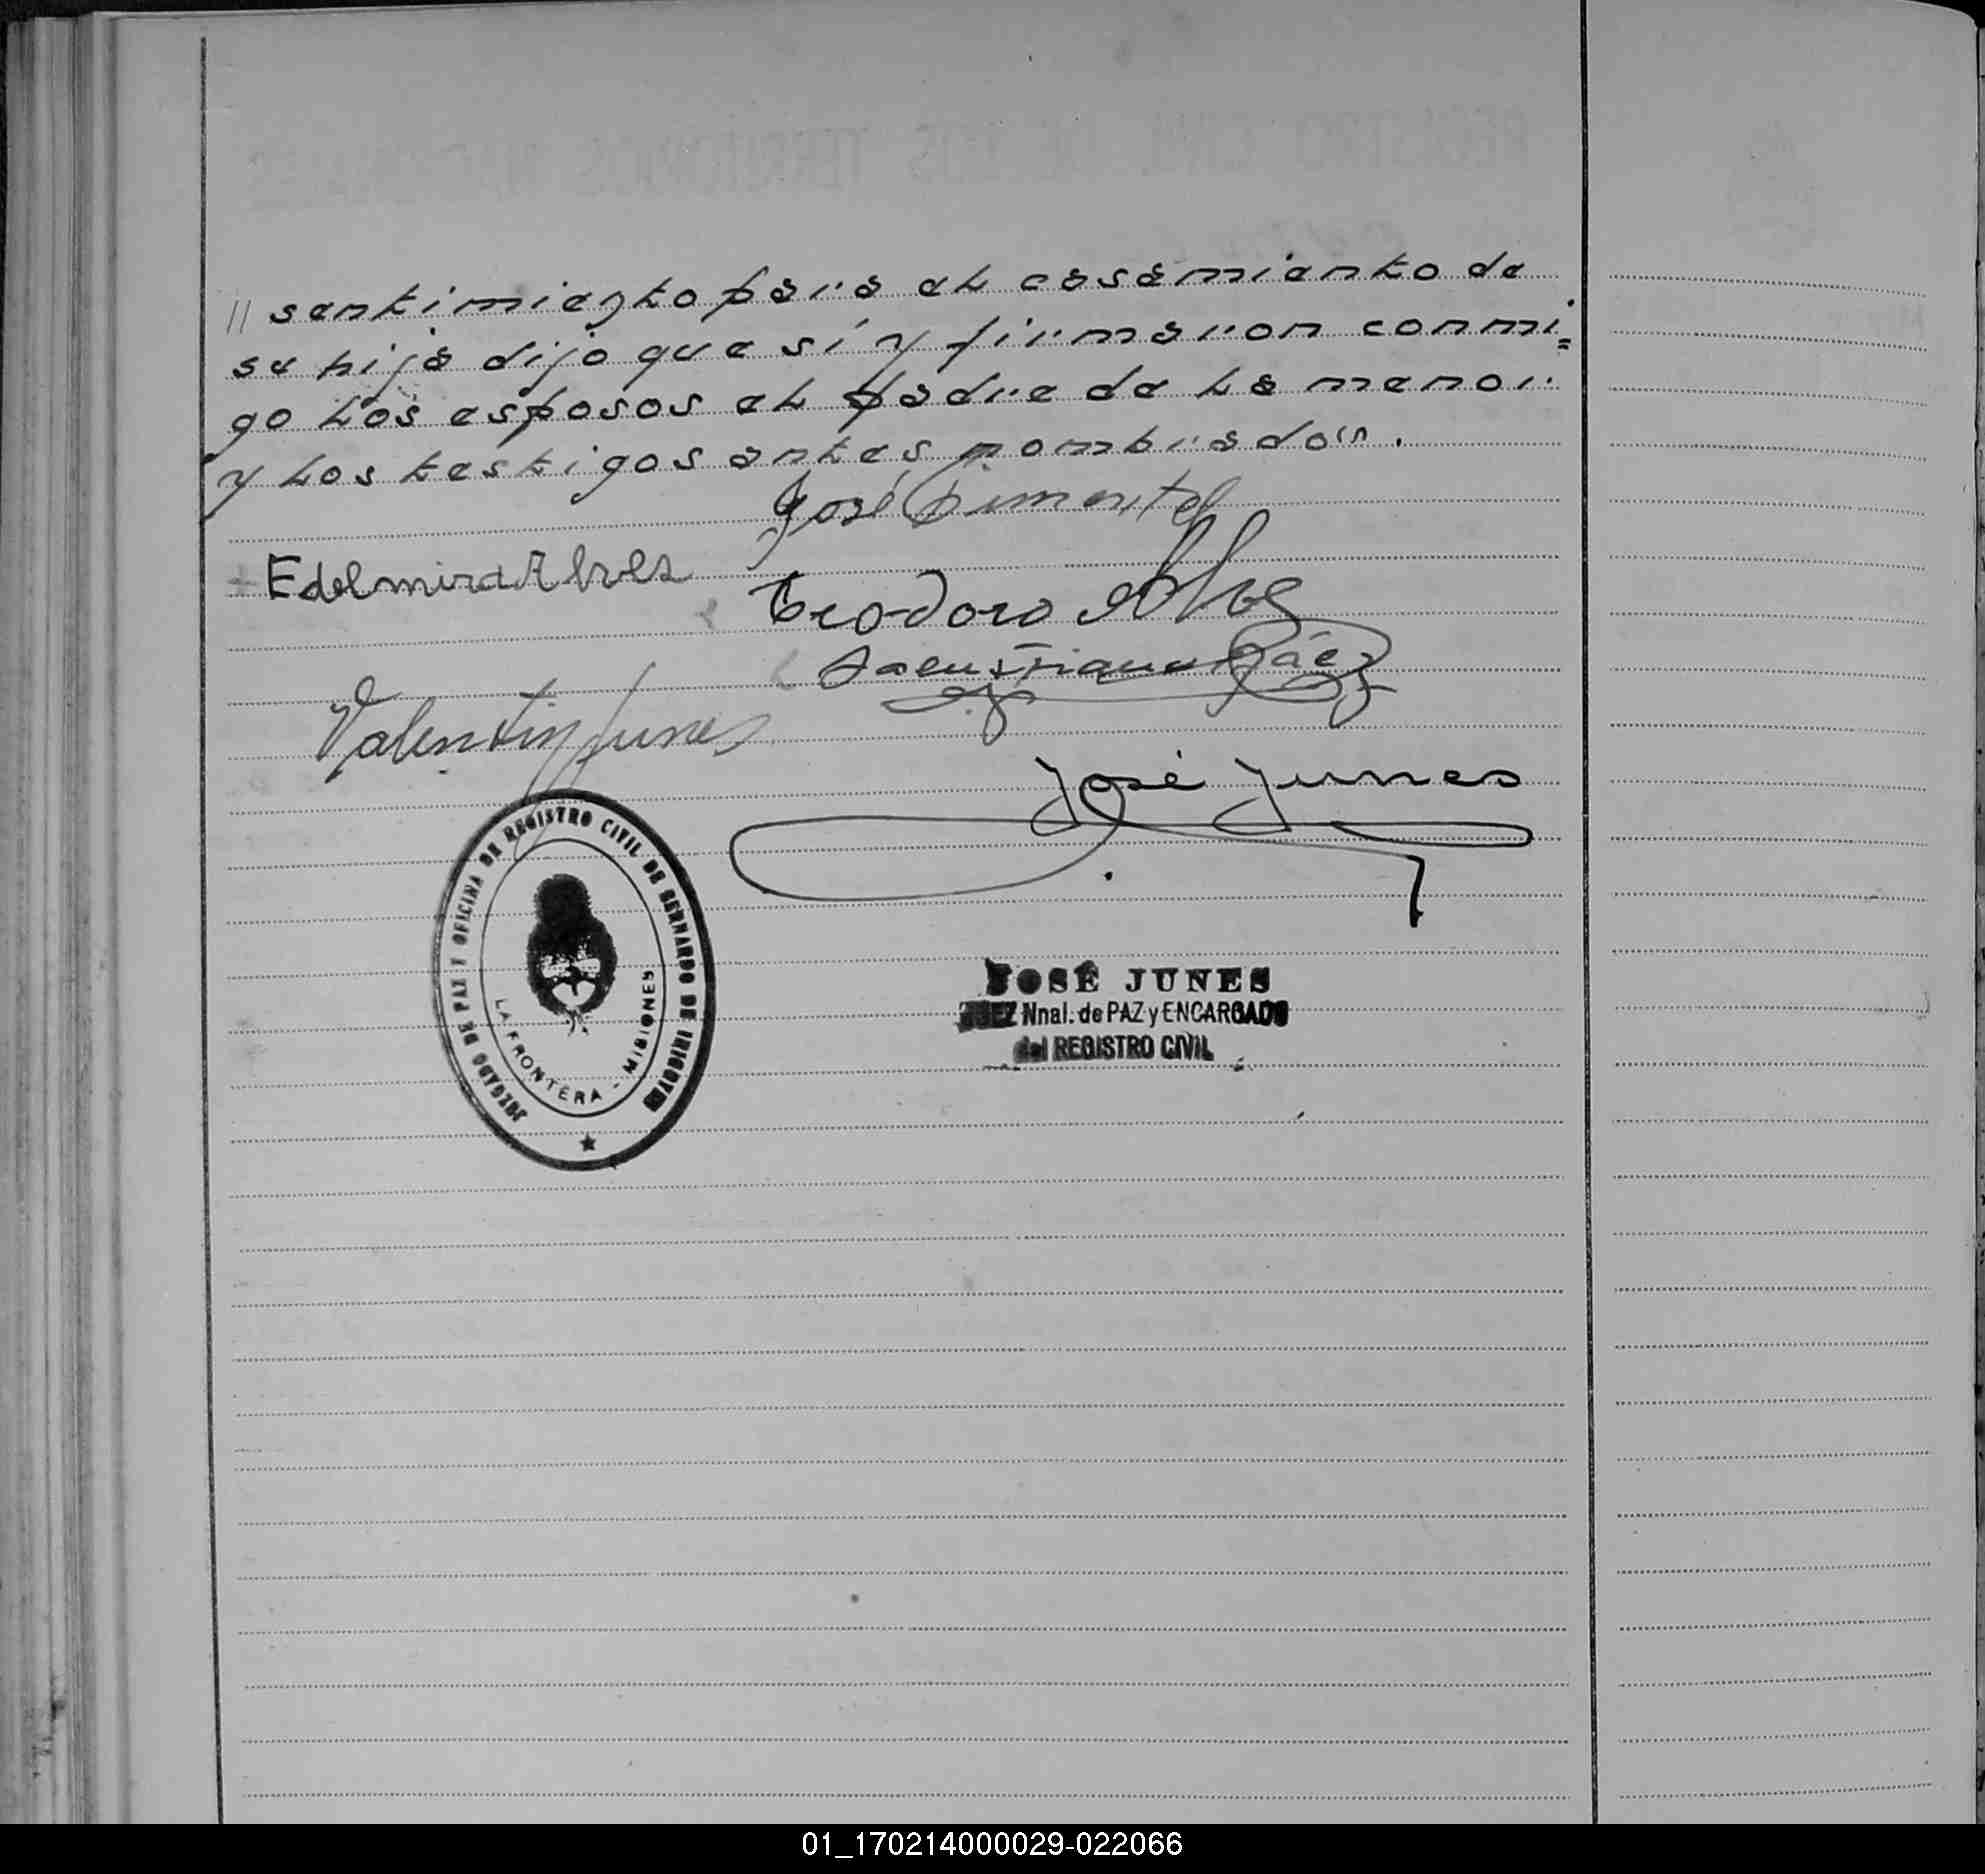 // sentimiento para el casamiento de
su hija dijo que sí y firmaron conmi=
go los esposos el padre de la menor
y los testigos antes nombrados.
José Pimentel
Edelmira Alves
Teodoro Alves
Salustiano Páez
Valentin Junes
José Junes
JUZGADO DE PAZ Y OFICINA DE REGISTRO CIVIL DE BERNARDO DE IRIGOYEN
LA FRONTERA - MISIONES
JOSÉ JUNES
JUEZ Nnal. de PAZ y ENCARGADO
del REGISTRO CIVIL
01_170214000029-022066